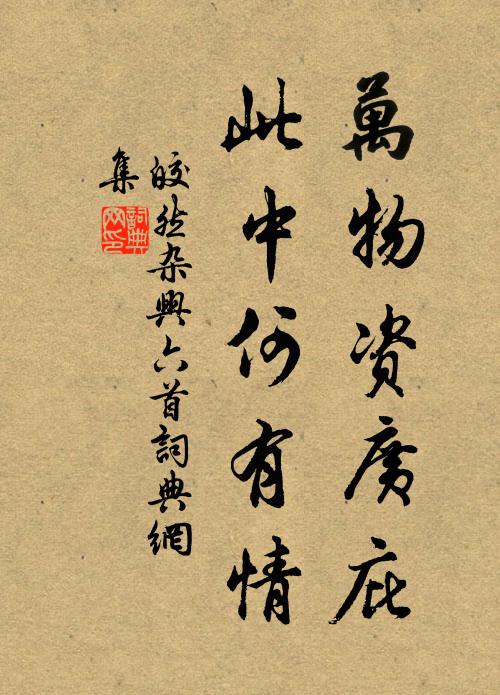 萬物资廣庇
此中何有情
皎然杂興六首詞典網
集
詞典网印